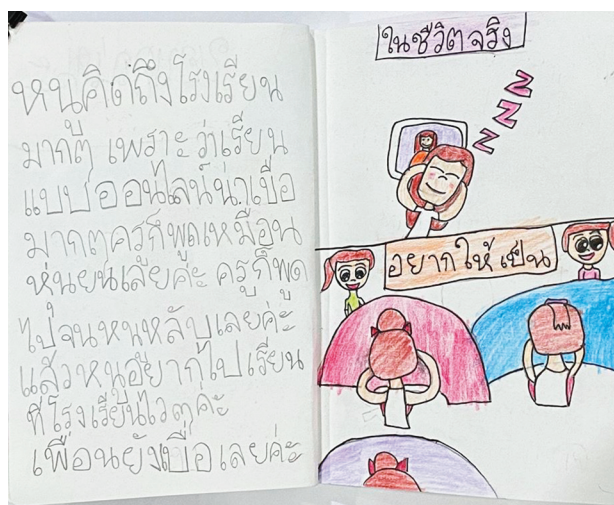 หนูคิดถึงโรงเรียน
มากๆ เพราะว่าเรียน
แบบออนไลน์น่าเบื่อ
มากๆครูก็พูดเหมือน
หุ่นยนเลยค่ะ ครูก็พูด
ไปจนหนูหลับเลยค่ะ
แล้วหนูอยากไปเรียน
ที่โรงเรียนไวๆค่ะ
เพื่อนยังเบื่อเลยค่ะ
ในชีวิตจริง
ZZZ
อยากให้เป็น